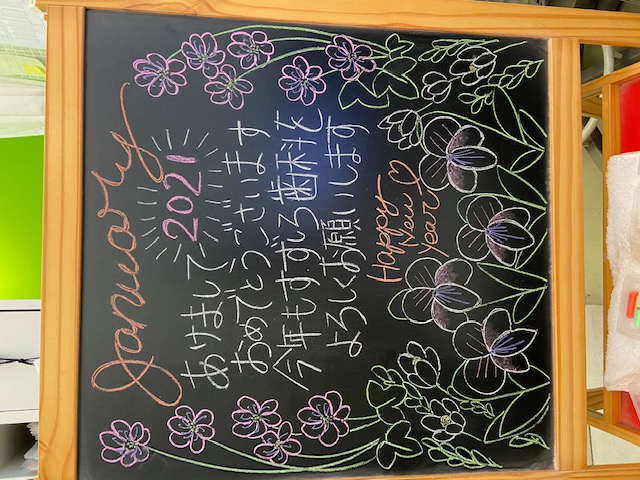 January
2021
あけまして
おめでとうございます
今年もすずき歯科を
よろしくお願いします
Happy
New
Year